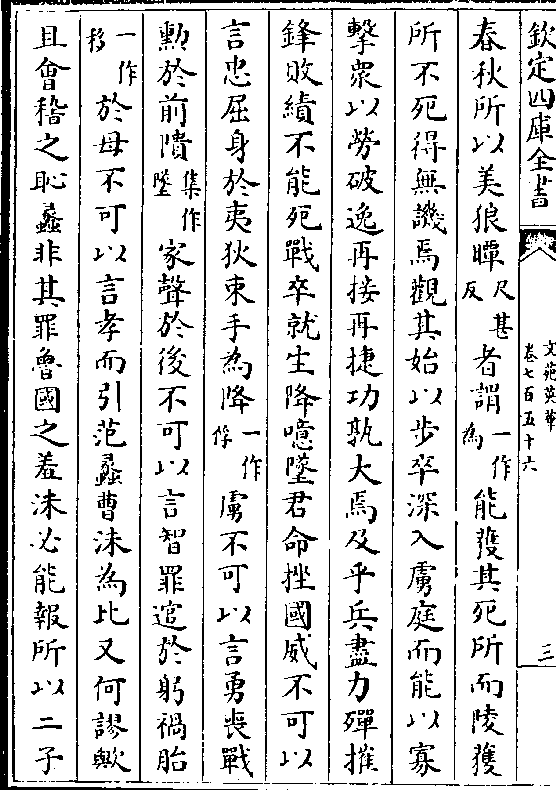 欽定四庫全書
文苑英華
卷七百五十六
三
春秋所以美狼瞫尺甚反者謂一作為能獲其死所而陵獲
所不死得無譏焉觀其始以步卒深入虜庭而能以寡
擊衆以勞破逸再接再捷功孰大焉及乎兵盡力殫摧
鋒敗績不能死戰卒就生降噫墜君命挫國威不可以
言忠屈身於夷狄束手為降一作俘虜不可以言勇喪戰
勲於前隤集作墜家聲於後不可以言智罪逭於躬禍胎
一作移於母不可以言孝而引范蠡曹沫為比又何謬歟
且會稽之恥蠡非其罪魯國之羞沫必能報所以二子